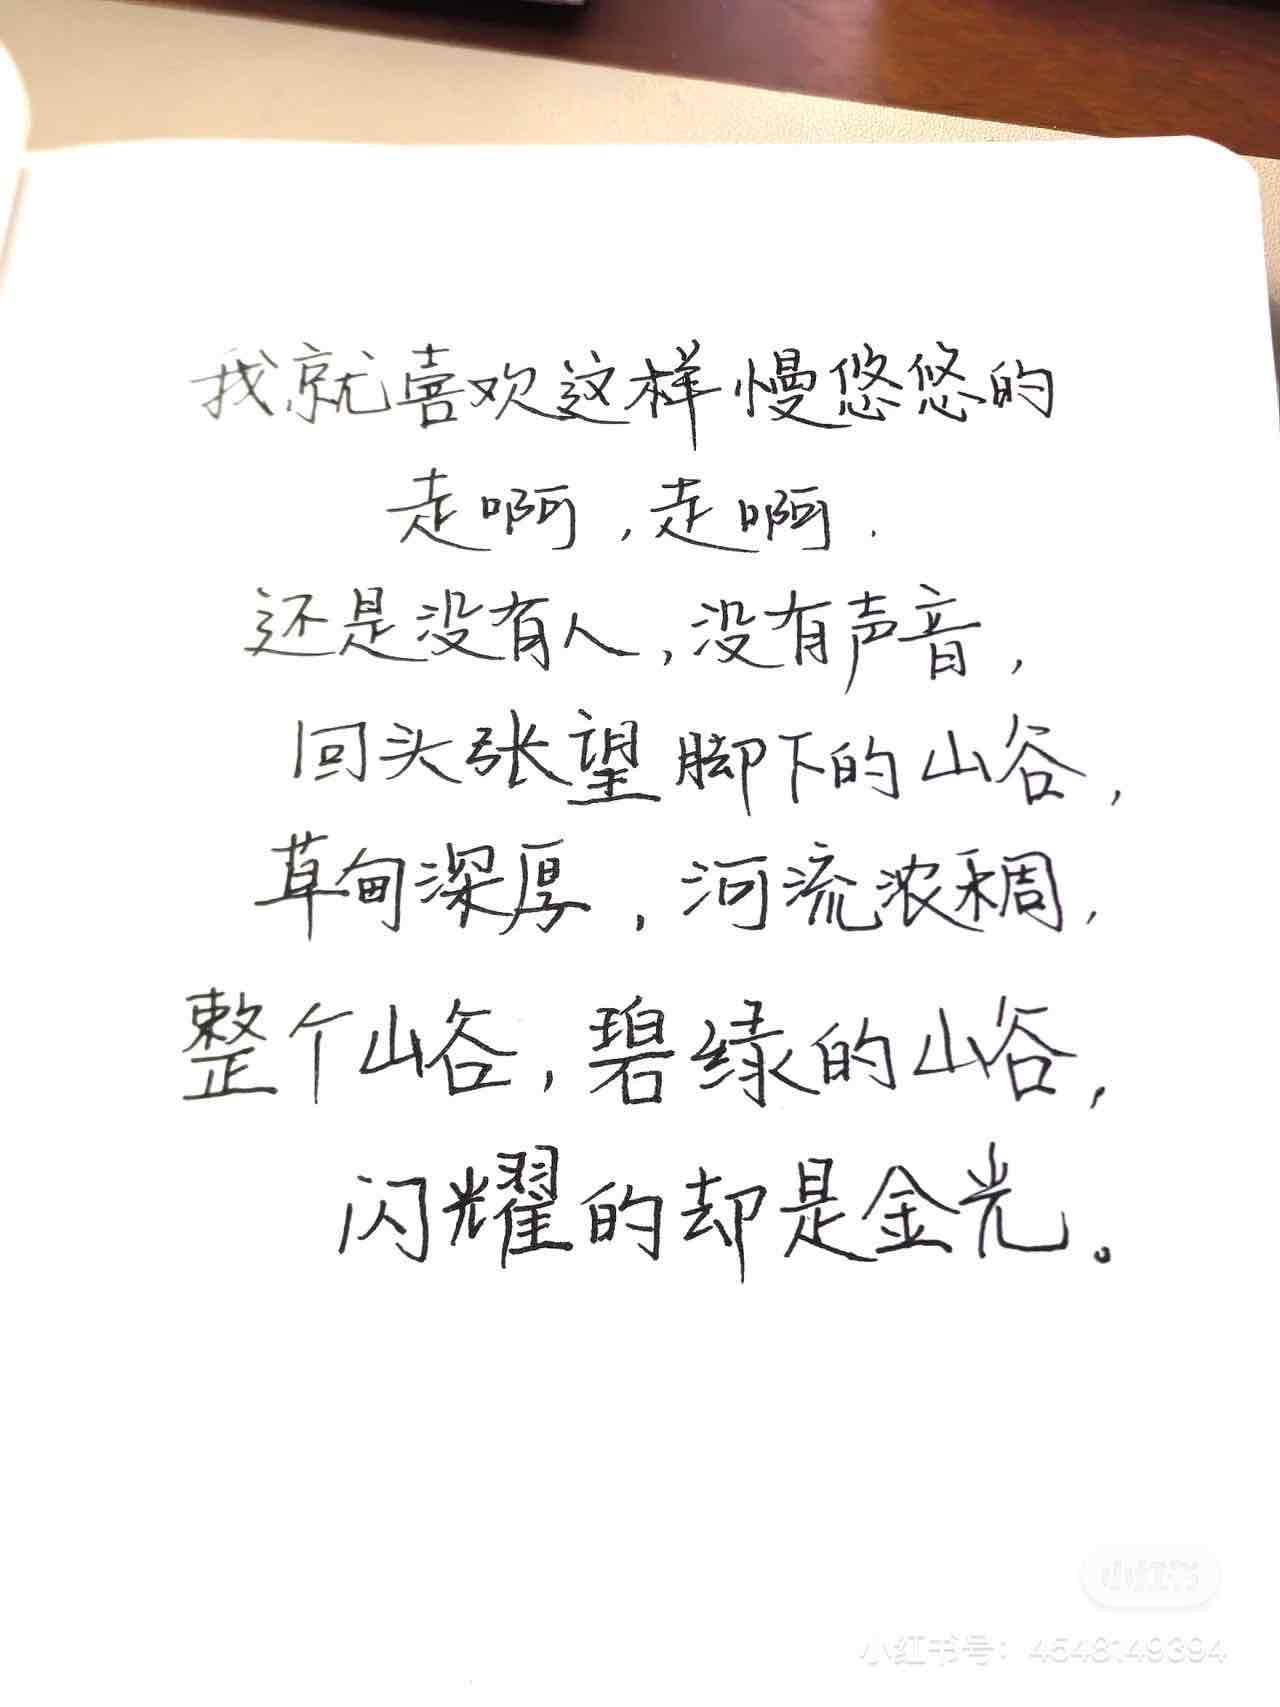 我就喜欢这样慢悠悠的
走啊,走啊.
还是没有人,没有声音,
回头张望脚下的山谷,
草甸深厚,河流浓稠,
整个山谷,碧绿的山谷,
闪耀的却是金光。
小红书
小红书号:4548149394